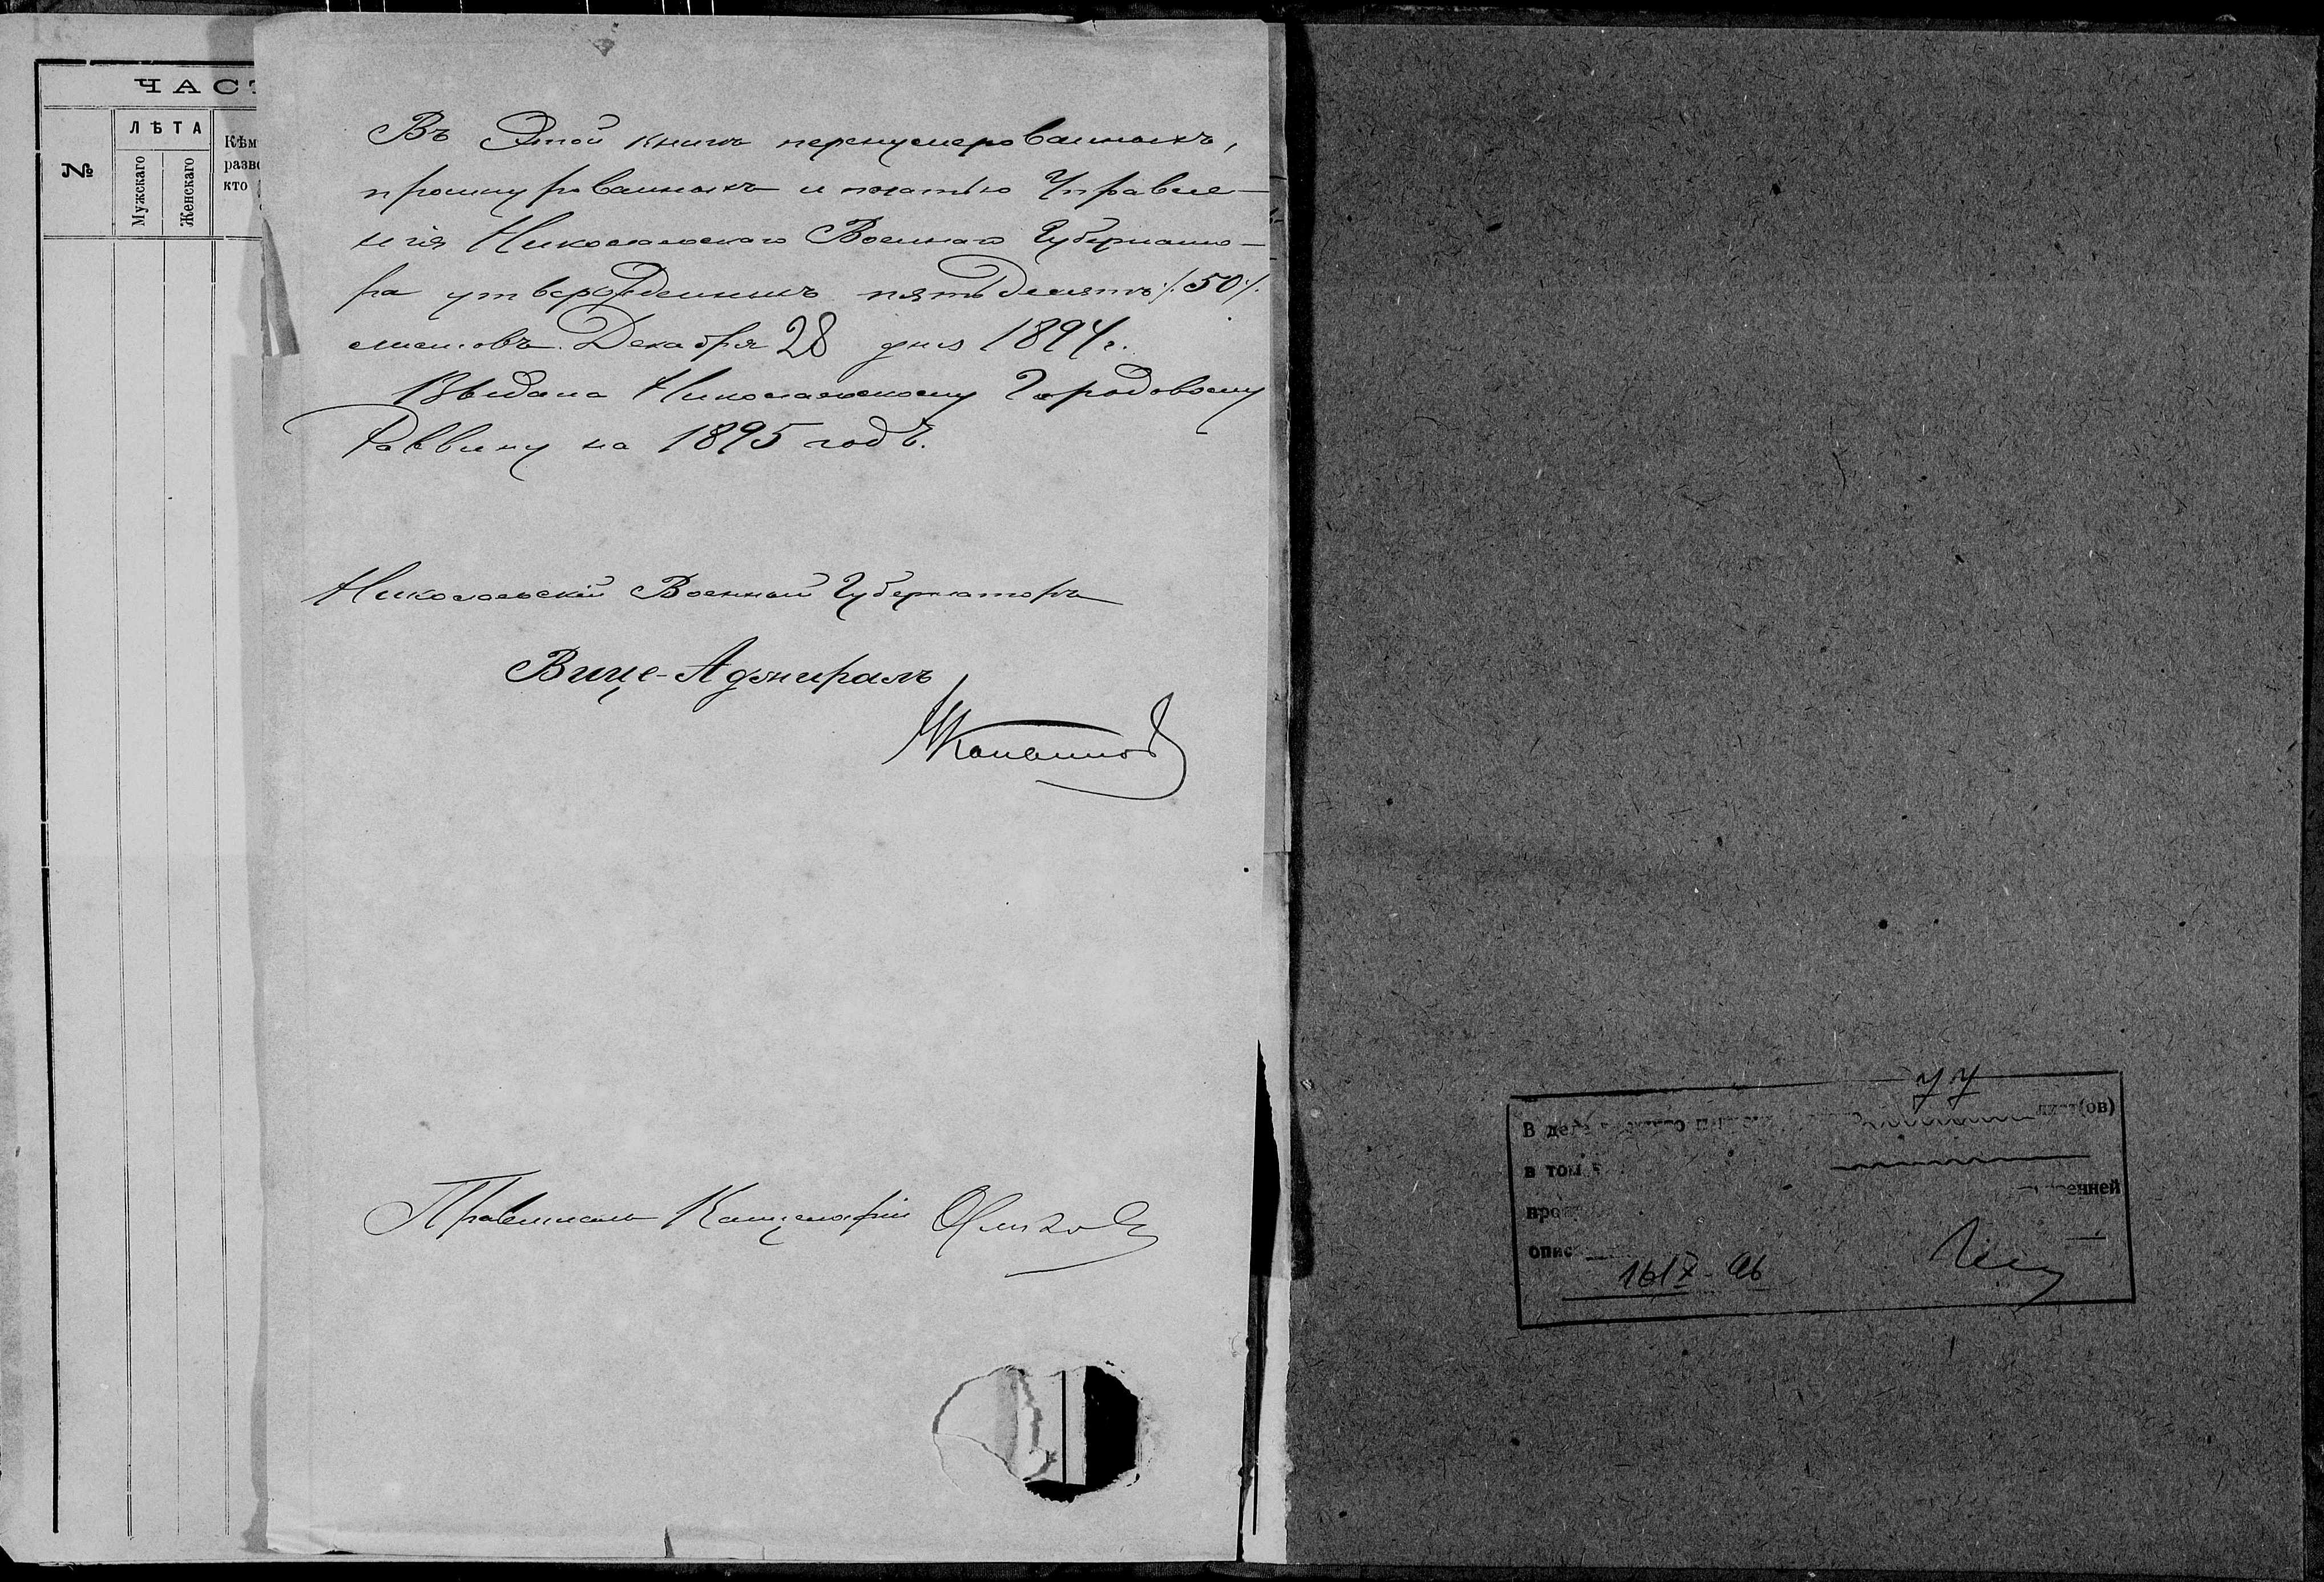 ЧАСТ
№
ЛѢТА
Мужскаго
Женскаго
Кѣм
разво
кто
Въ Этой книгѣ перенумерованныхъ,
прошнурованныхъ и печатью Управле-
нія Николаевскаго Военнаго Губернато-
ра утвержденныхъ пятьдесятъ /:50:/
листовъ. Декабря 28 дня 1894 г.
Выдана Николаевскому Городовому
Раввину на 1895 годъ.
Николаевскій Военный Губернаторъ
Вице-Адмиралъ
Правитель Канцеляріи
В деле
лист(ов)
в том
енней
опис
16/X-96